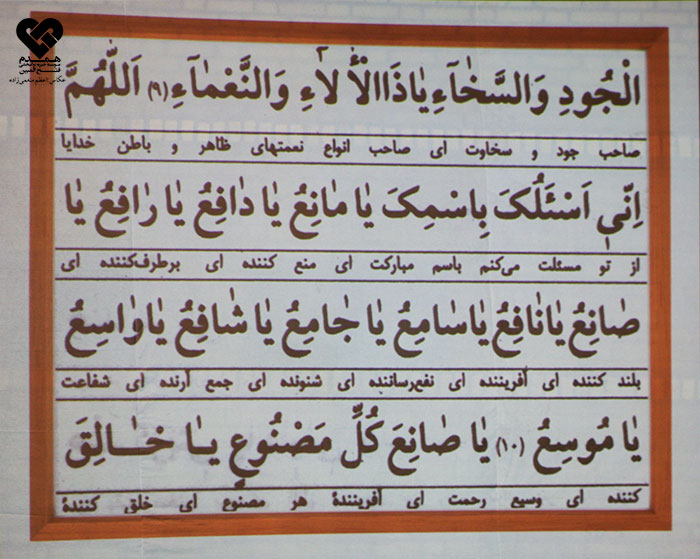 همدم
عکاس: اعظم منعمی‌زاده
الْجُودِ وَالسَّخٰآءِ یٰاذَاالْاٰلٰاءِ وَالنَّعْمٰآءِ (۹) اَللّٰهُمَّ
صاحب جود و سخاوت ای صاحب انواع نعمتهای ظاهر و باطن خدایا
اِنّی اَسْئَلُکَ بِاسْمِکَ یٰا مٰانِعُ یٰا دٰافِعُ یٰا رٰافِعُ یٰا
از تو مسئلت می‌کنم باسم مبارکت ای منع کننده ای برطرف‌کننده ای
صٰانِعُ یٰانٰافِعُ یٰاسٰامِعُ یٰا جٰامِعُ یٰا شٰافِعُ یٰاوٰاسِعُ
بلند کننده ای آفریننده ای نفع‌رساننده ای شنونده ای جمع آرنده ای شفاعت
یٰا مُوسِعُ (۱۰) یٰا صٰانِعَ کُلِّ مَصْنُوعٍ یٰا خٰالِقَ
کننده ای وسیع رحمت ای آفرینندهٔ هر مصنوع ای خلق کنندهٔ